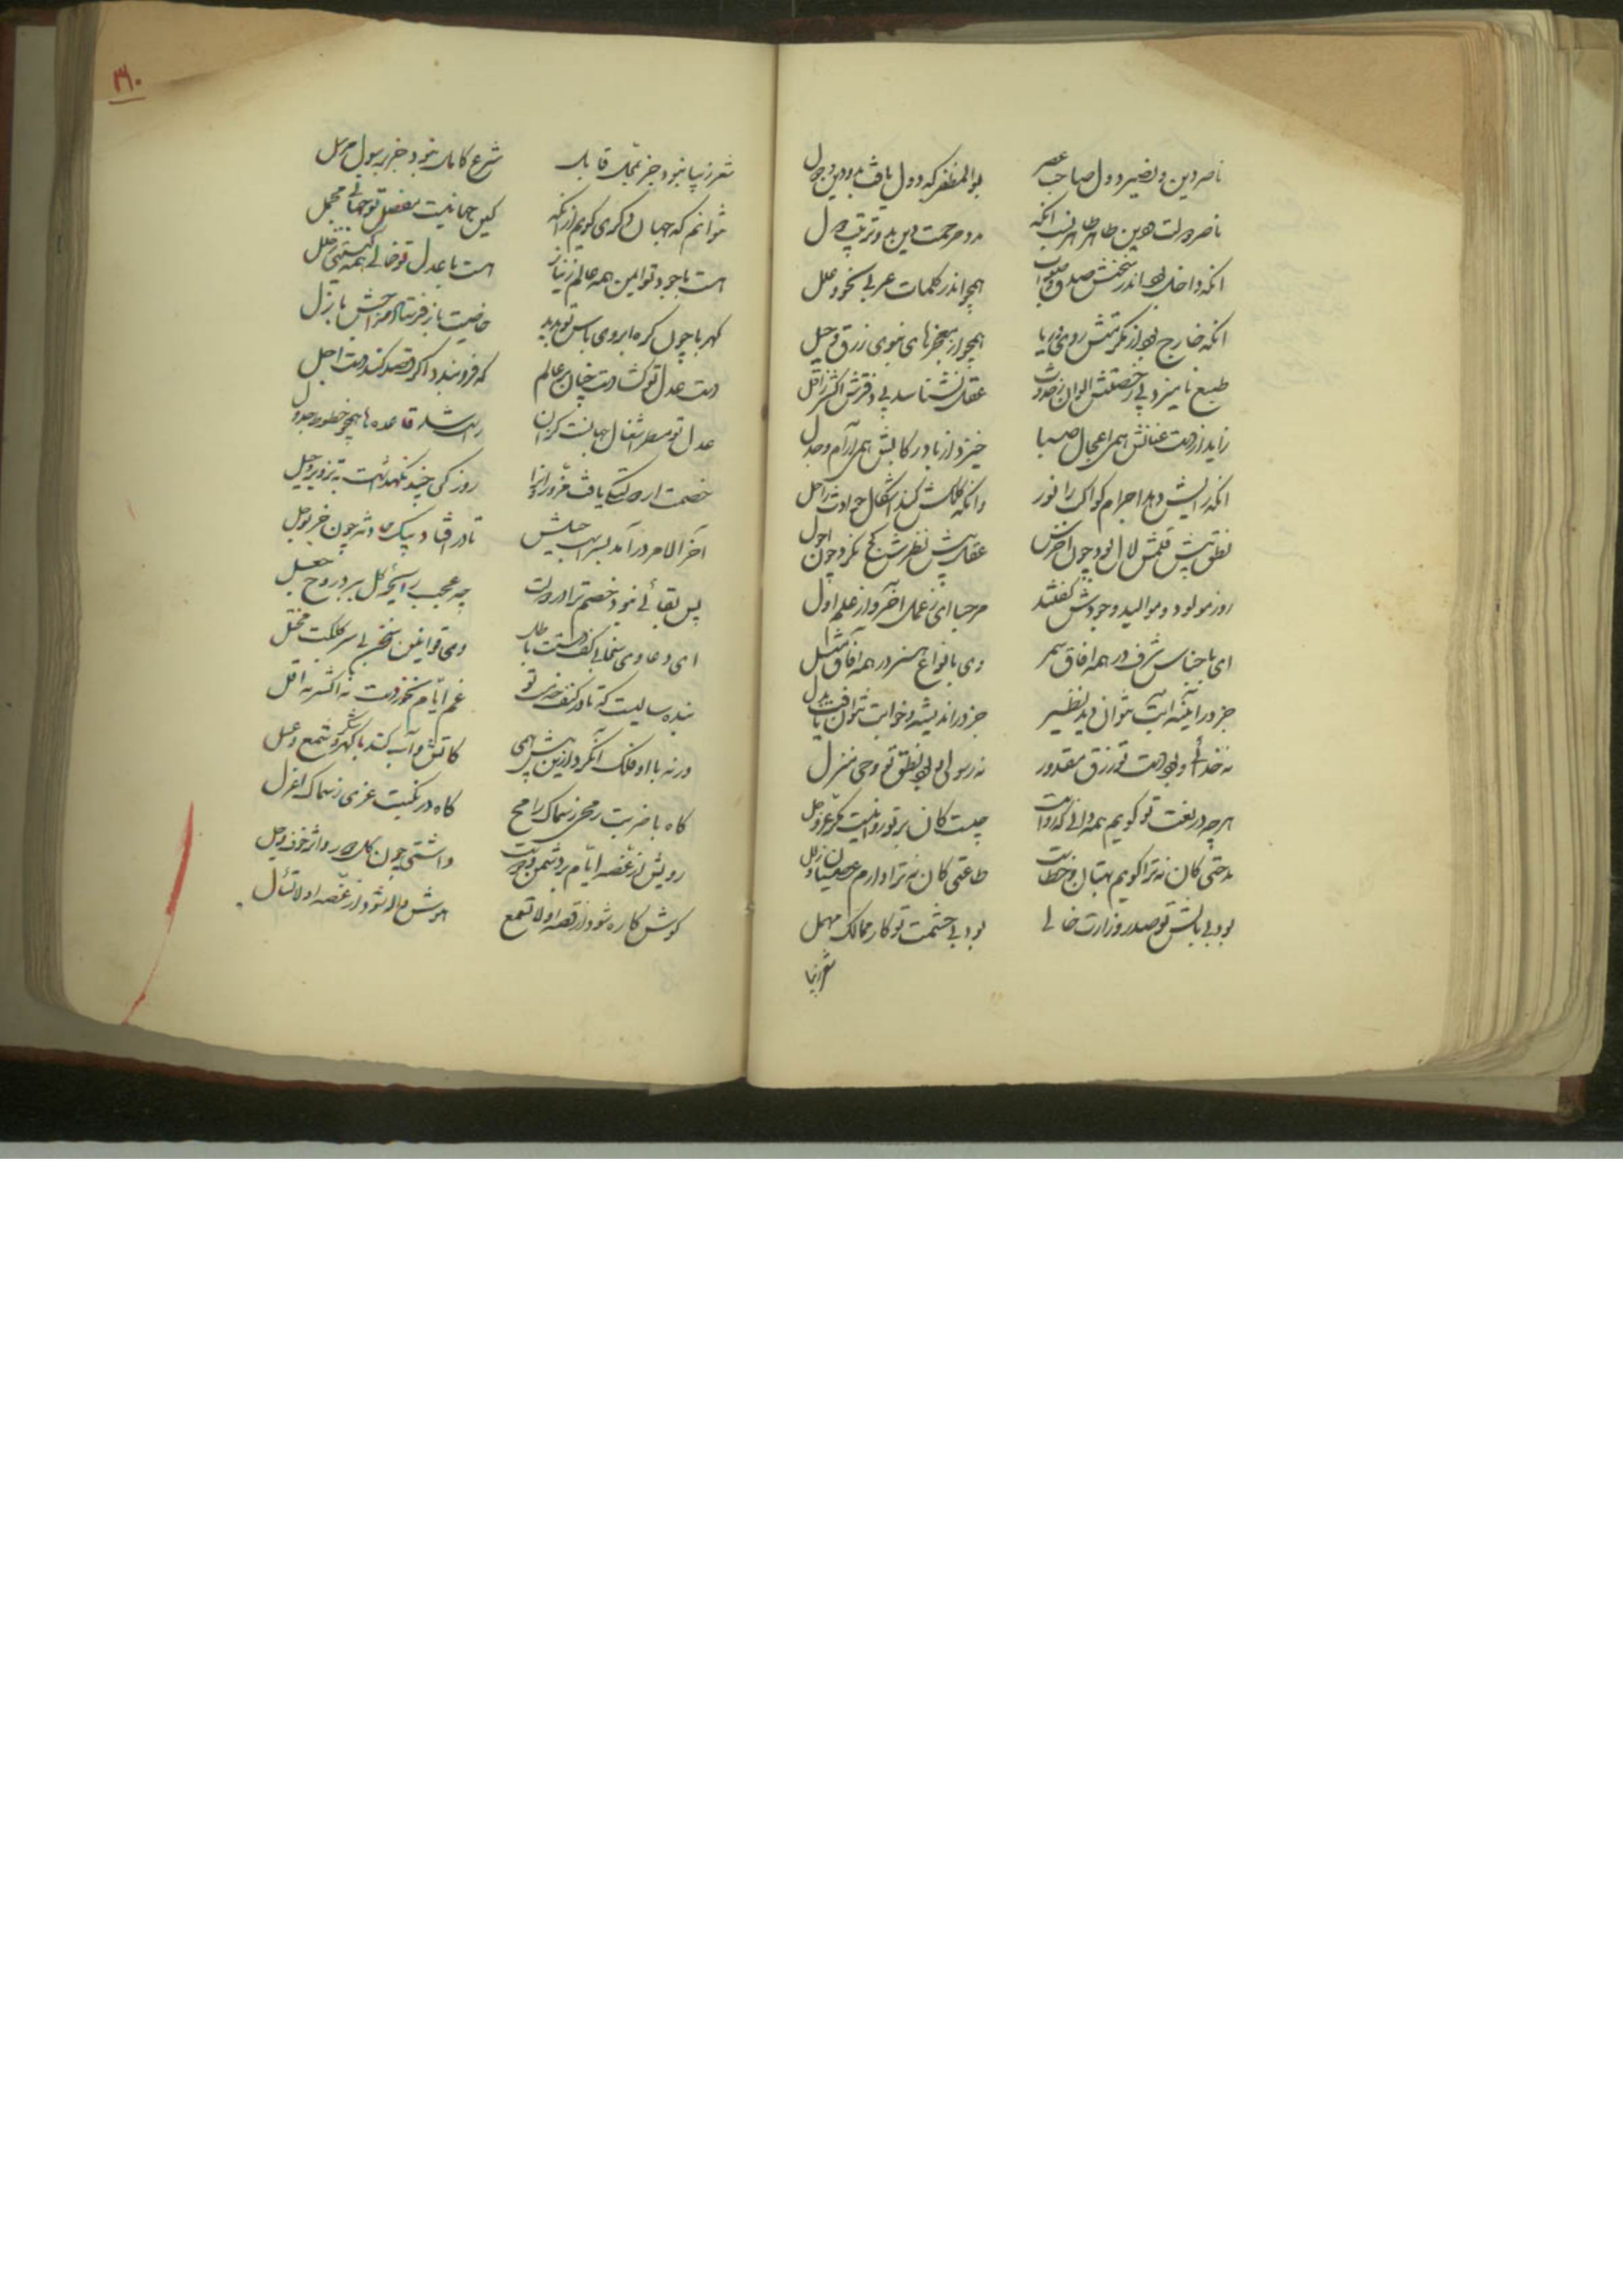 ناصر دین و نصیر دول صاحب عصر بوالمظفر که دول یافت بدو دین و دول
ناصر دولت و دین طاهر طاهر نسب آنکه مدد مرحمت دین بد و ترتیب دول
انکه داخل بود اندر سخنش صدق و صواب همچو اندر کلمات عربی نحو و علل
انکه خارج بود از مکرمتش روی و ریا همچو از معجزهای نبوی زرق و حیل
طبع نامیزد بی رخصتش الوان حدوث عقل نشناسد بی دفترش اکثر ز اقل
زاید از دست عنانش همی اعجال صبا خیزد از باد رکابش همی آرام و جبل
انکه رایش دهد اجرام کواکب را نور وانکه کلکش کند اشکال حوادث را حل
نطق پیش قلمش لال بود چون اخرس عقل پیش نظرش کج نگرد چون احول
روز مولود و موالید وجودش گفتند مرحبا ای ز عمل آخر و از علم اول
ای باجناس شرف در همه افاق سمر وی بانواع هنر در همه آفاق مثل
جز در آینه و آبت نتوان دید نظیر جز در اندیشه و خوابت نتوان یافت بدل
نه خدائی و بود دست تو رزق مقدور نه رسولی و بود نطق تو وحی منزل
هرچه در نعت تو گویم همه دانی که رواست چیست کان بر تو روا نیست مگر عز و جل
مدحتی کان نه ترا گویم بهتان و خطاست طاعتی کان نه ترا دارم عصیان و زلل
بود بی بالش تو صدر وزارت خالی بود بی حشمت تو کار ممالک مهمل
شعر زیبا
۳۱۰
شعر زیبا نبود جز بمحل قابل شرع کامل نبود جز برسول مرسل
نتوانم که جهان دگری گویم از آنکه کین جهانیست مفصل تو جهانی مجمل
هست با جود تو ایمن همه عالم ز نیاز هست با عدل تو خالی همه گیتی ز خلل
کهربا چون گره ابروی باس تو بدید خاصیت باز فرستاد مزاجش بازل
دست عدل تو گشادست چنان بر عالم که فرو بندد اگر قصد کند دست اجل
عدل تو مسطر اشغال جهانست کزان راست شد قاعده ها همچو خطوط جدول
خصمت ار دولتکی یافت مزور او را روزکی چند نگهداشت بتزویر و حیل
آخر الامر درآمد بسر اسب حیلش تا در افتاد بیک حادثه چون خر بوحل
پس بقائی نبود خصم ترا در دولت چه عجب رایحه گل ببرد روح جعل
ای دعاوی سخا بی کف دستت باطل وی قوانین سخن بی سر کلکت مختل
بنده سالیست که تا در کنف خدمت تو غم ایام نخوردست نه اکثر نه اقل
ورنه با او فلک آن کرد ازین پیش همی کاتش و آب کند با گهر و شمع و عسل
گاه با ضربت رمحی ز سماک رامح گاه در نکبت عزلی ز سماک اعزل
رویش از غصه ایام بر دشمن و دوست داشتی چون گل دو رو اثر خوف و وجل
گوش کاره شود از قصه او لا تسمع هوش واله شود از غصه او لا تسأل